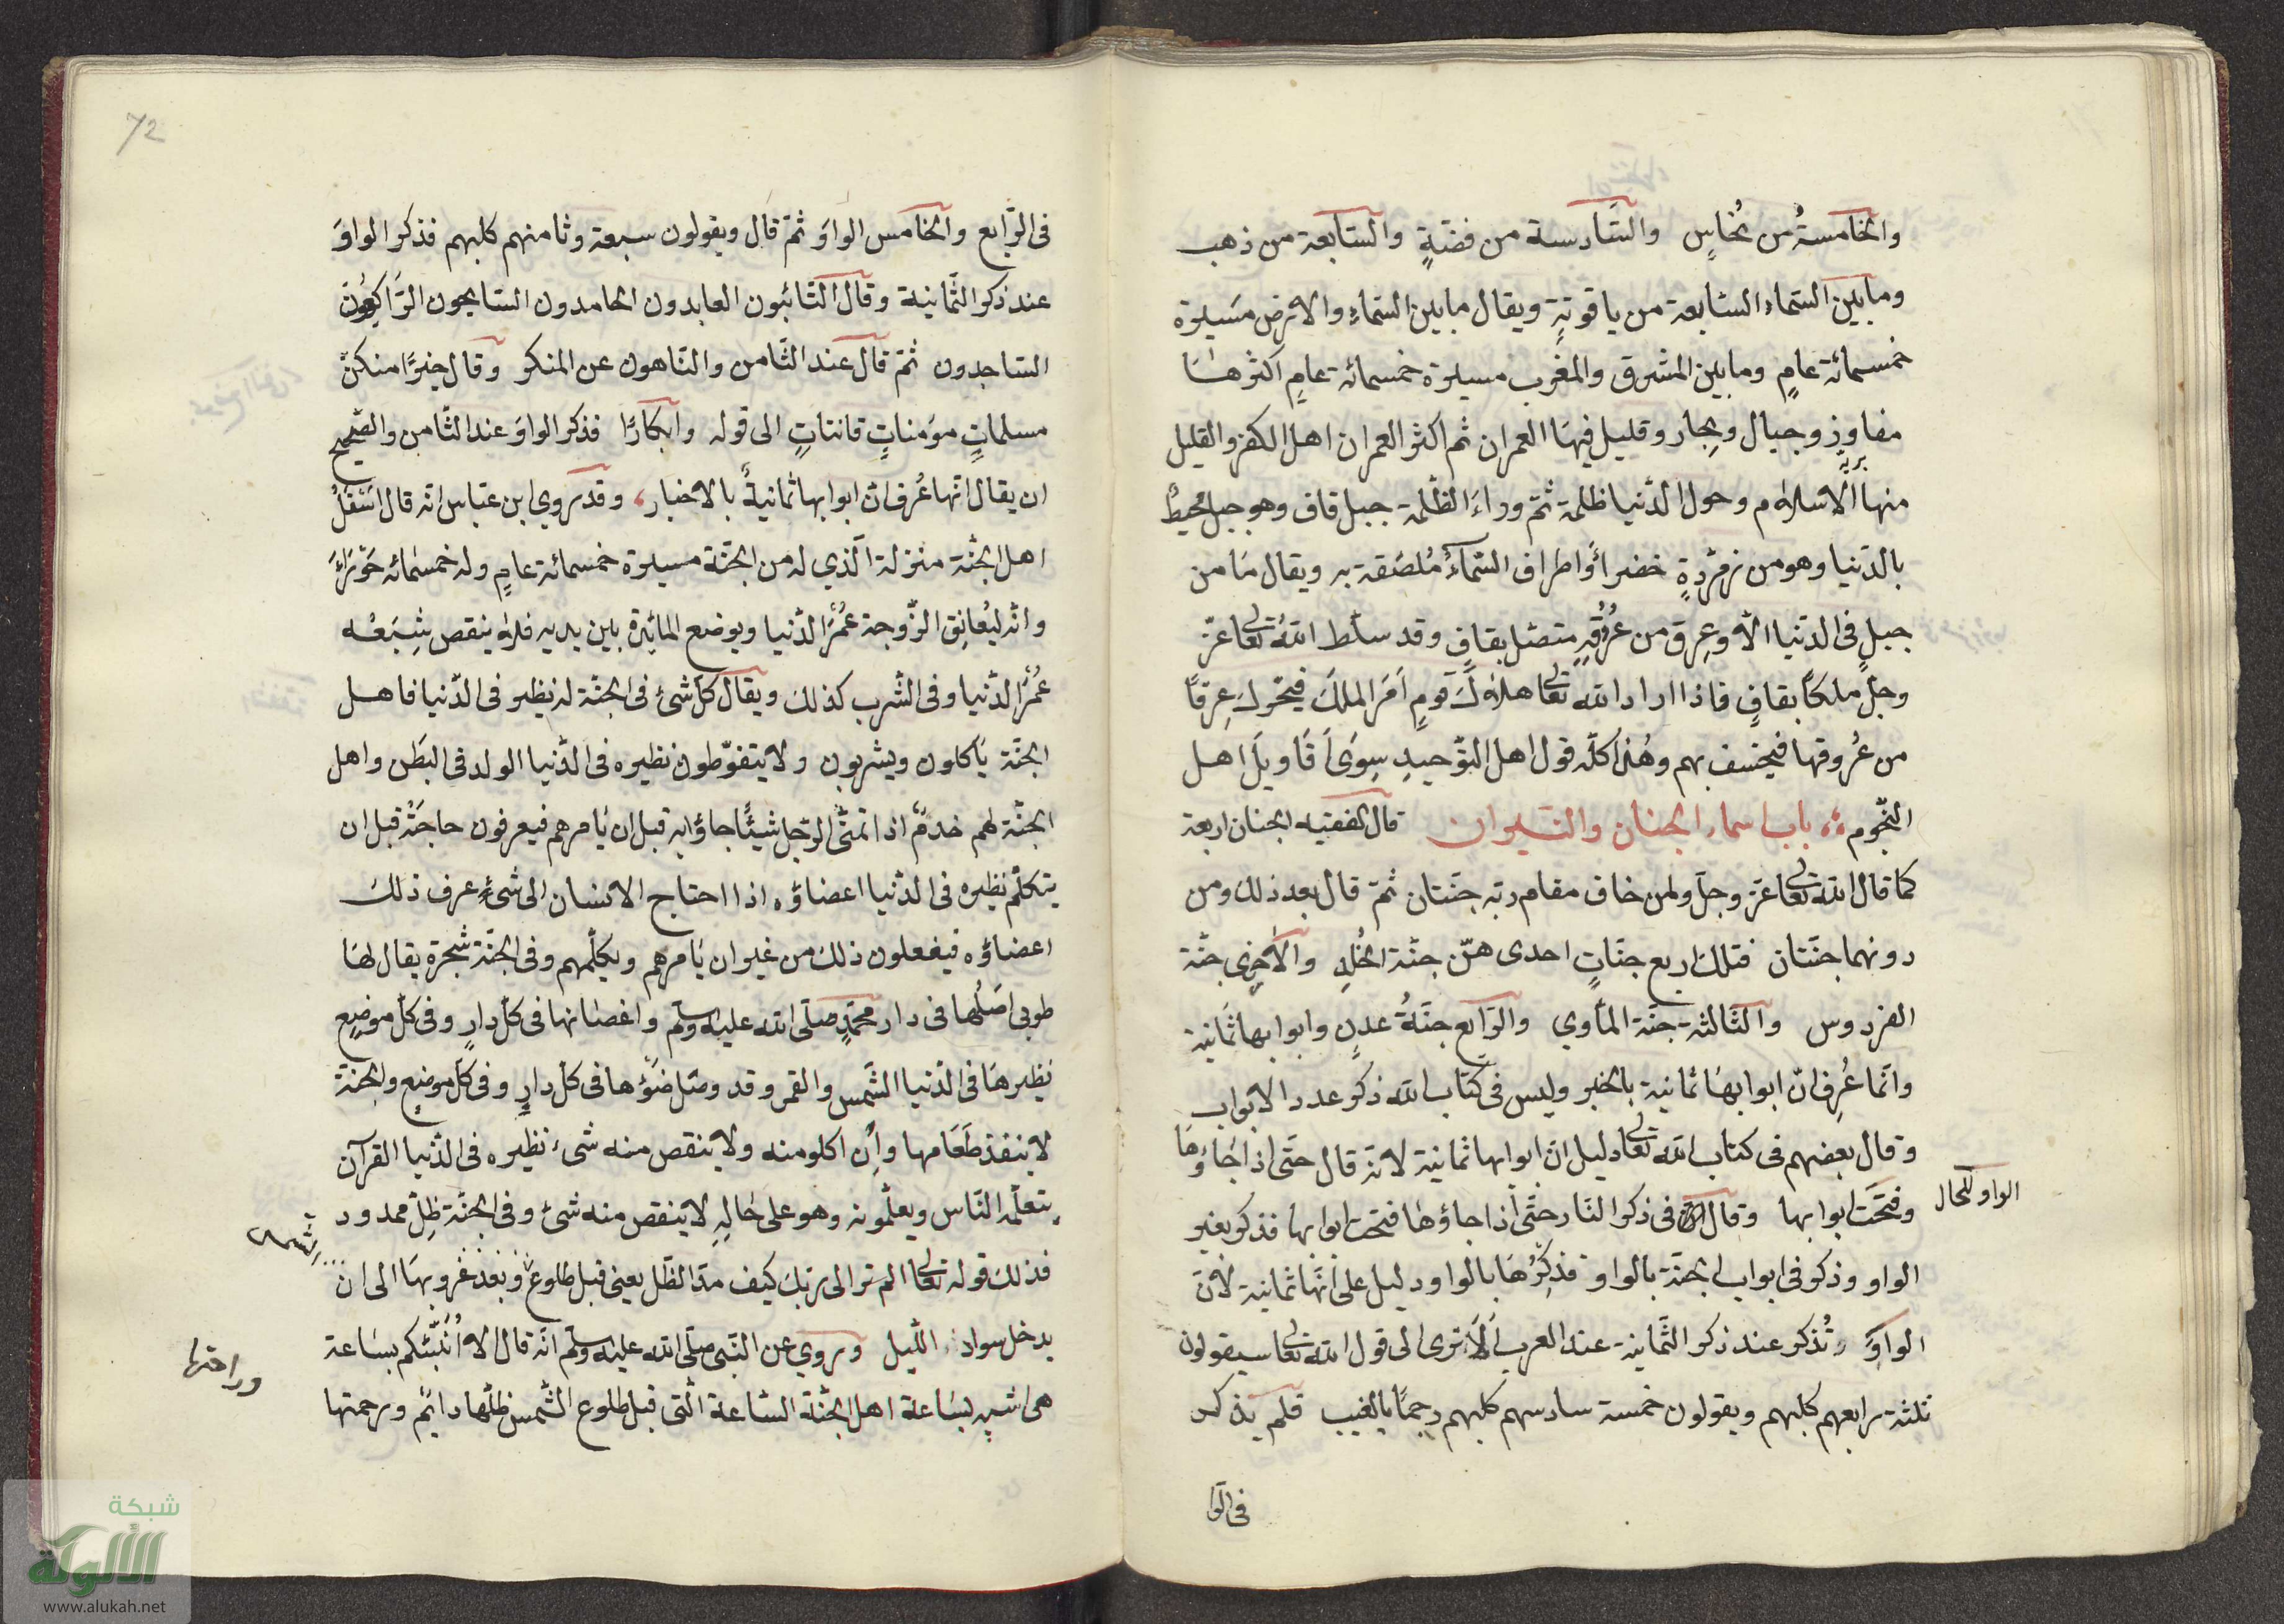 والخامسةُ من نُحاسٍ والسَّادسة من فضّةٍ والسّابعة من ذهب
وما بين السّماء السّابعة من ياقوتةٍ ويقال ما بين السّماء والارض مَسيرة
خمسمائة عامٍ وما بين المشرق والمغرب مسيرة خمسمائة عامٍ اكثرها
مفاوز وجبال وبحار وقليل فيها العمران ثم اكثر العمران اهل الكفر والقليل
منها الاسلام وحول الدّنيا ظلمة ثمّ وراءَ الظّلمة جبل قاف وهو جبل محيطٌ
بالدّنيا وهو من زمرّدةٍ خضراءَ واطراف السّماءُ مُلصَقة به ويقال مَا من
جبلٍ في الدّنيا الّا وعِرق من عُرُوقِهِ متصّل بقافٍ وقد سلّط اللهُ تعالى عزّ
وجلّ ملكاً بقافٍ فاذا اراد الله تعالى هلاك قومٍ امَرَ الملكَ فيحّرك عِرقًا
من عُروقها فيخسف بهم وهٰذا كلّه قول اهل التّوحيدِ سِوَى اَقاويلَ اهل
النّجوم باب اسماء الجنان والنّيران قال الفقيه الجنان اربعة
كما قال الله تعالى عزّ وجلّ ولمن خاف مقام ربّه جنّتان ثمّ قال بعد ذلك ومن
دونهما جنّتان فتلك اربع جنّاتٍ احدى هنّ جنّة الخُلدِ والاُخرى جنّة
الفردوس والثّالثة جنّة المأوي والرّابع جنّةُ عدنٍ وابوابها ثمانية
وانّما عُرِفَ انّ ابوابهَا ثمانية بالخبر وليس في كتاب الله ذكر عدد الابواب
وقال بعضهم في كتاب الله تعالى دليل انّ ابوابها ثمانية لانّه قال حتّى اذا جَاؤهَا
وفتحَت ابوابها وقال في ذكر النّار حتّى اذا جاؤهَا فتحت ابوابها فذكر بغير
الواو للحال
الواو وذكر في ابواب الجنّة بالواو فذِكرُهَا بالواو دليل على انّهَا ثمانية لانّ
الواوَ تُذكر عند ذكر الثّمانية عند العرب اَلَا ترى الى قول الله تعالى سيقولون
ثلثة رابعهم كلبهم ويقولون خمسة سادسهم كلبهم رجمًا بالغيب فلم يذكر
في الرّا
72
في الرّابع والخامس الواوَ ثمّ قال ويقولون سبعة وثامنهم كلبهم فذكر الواوَ
عند ذكر الثّمانية وقال التّائبون العابدون الحامدون السّايحون الرّاكِعُون
السّاجدون ثمّ قال عند الثّامن والنّاهون عن المنكر وقال خيرًا منكنّ
مسلماتٍ مؤمناتٍ قانتاتٍ الى قوله وابكارًا فذكر الواوَ عند الثّامن والصّحيح
ان يقال انّها عُرف انّ ابوابها ثمانيةٌ بالاخبار وقد روي ابن عبّاس انّه قال اسفلُ
اهل الجنّة منزلة الّذي له من الجنّة مسيرة خمسمائة عامٍ وله خمسمائة حَوراءَ
وانّه ليُعانِق الزّوجة عُمُرَ الدّنيا ويوضع المائدة بين يديه فلا ينقص شِبَعُه
عُمُرَ الدّنيا وفي الشّرب كذلك ويقال كلّ شئ في الجنّة له نظير في الدّنيا فاهل
الجنّة يأكلون ويشربون ولا يتغوّطون نظيره في الدّنيا الولد في البَطن واهل
الجنّة لهم خدمٌ اذا تمنّى الرّجل شيئًا جاؤا به قبل ان يأمرهم فيعرفون حاجَته قبل ان
يتكلّم نظيره في الدّنيا اعضاؤه اذا احتاج الانسان الى شئٍ عرف ذلك
اعضاؤه فيفعلون ذلك من غير ان يأمرهم ويكلّمهم وفي الجنّة شجرة يقال لهَا
طوبى اصَلُها في دار محمّدٍ صلّى الله عليه وسلّم واغصانها في كلّ دارٍ وفي كلّ موضِعٍ
نظيرهَا في الدّنيا الشّمس والقمر وقد وصَل ضَوْءُها في كلّ دارٍ وفي كلّ موضعٍ والجنّة
لا ينفذ طَعَامها وإن اكلو منه ولا ينقص منه شئ نظيره في الدّنيا القرآن
يتعلّمه النّاس ويعلّمونه وهو على حَالِهِ لا ينقص منه شئ وفي الجنّة ظِلّ ممدود
فذلك قوله تعالى الم تر الى ربّك كيف مدّ الظّل يعني قبل طلوع وبعد غروبهَا الى ان
الشمس
يدخل سواد اللّيل وروي عن النّبي صلّى الله عليه وسلّم انّه قال الا أُنَبِّئكم بسَاعة
هي اشبه بسَاعة اهل الجنّة السّاعة الّتي قبل طلوع الشّمس ظلّها دائم ورحمتها
وراحتها
شبكة
الألوكة
www.alukah.net